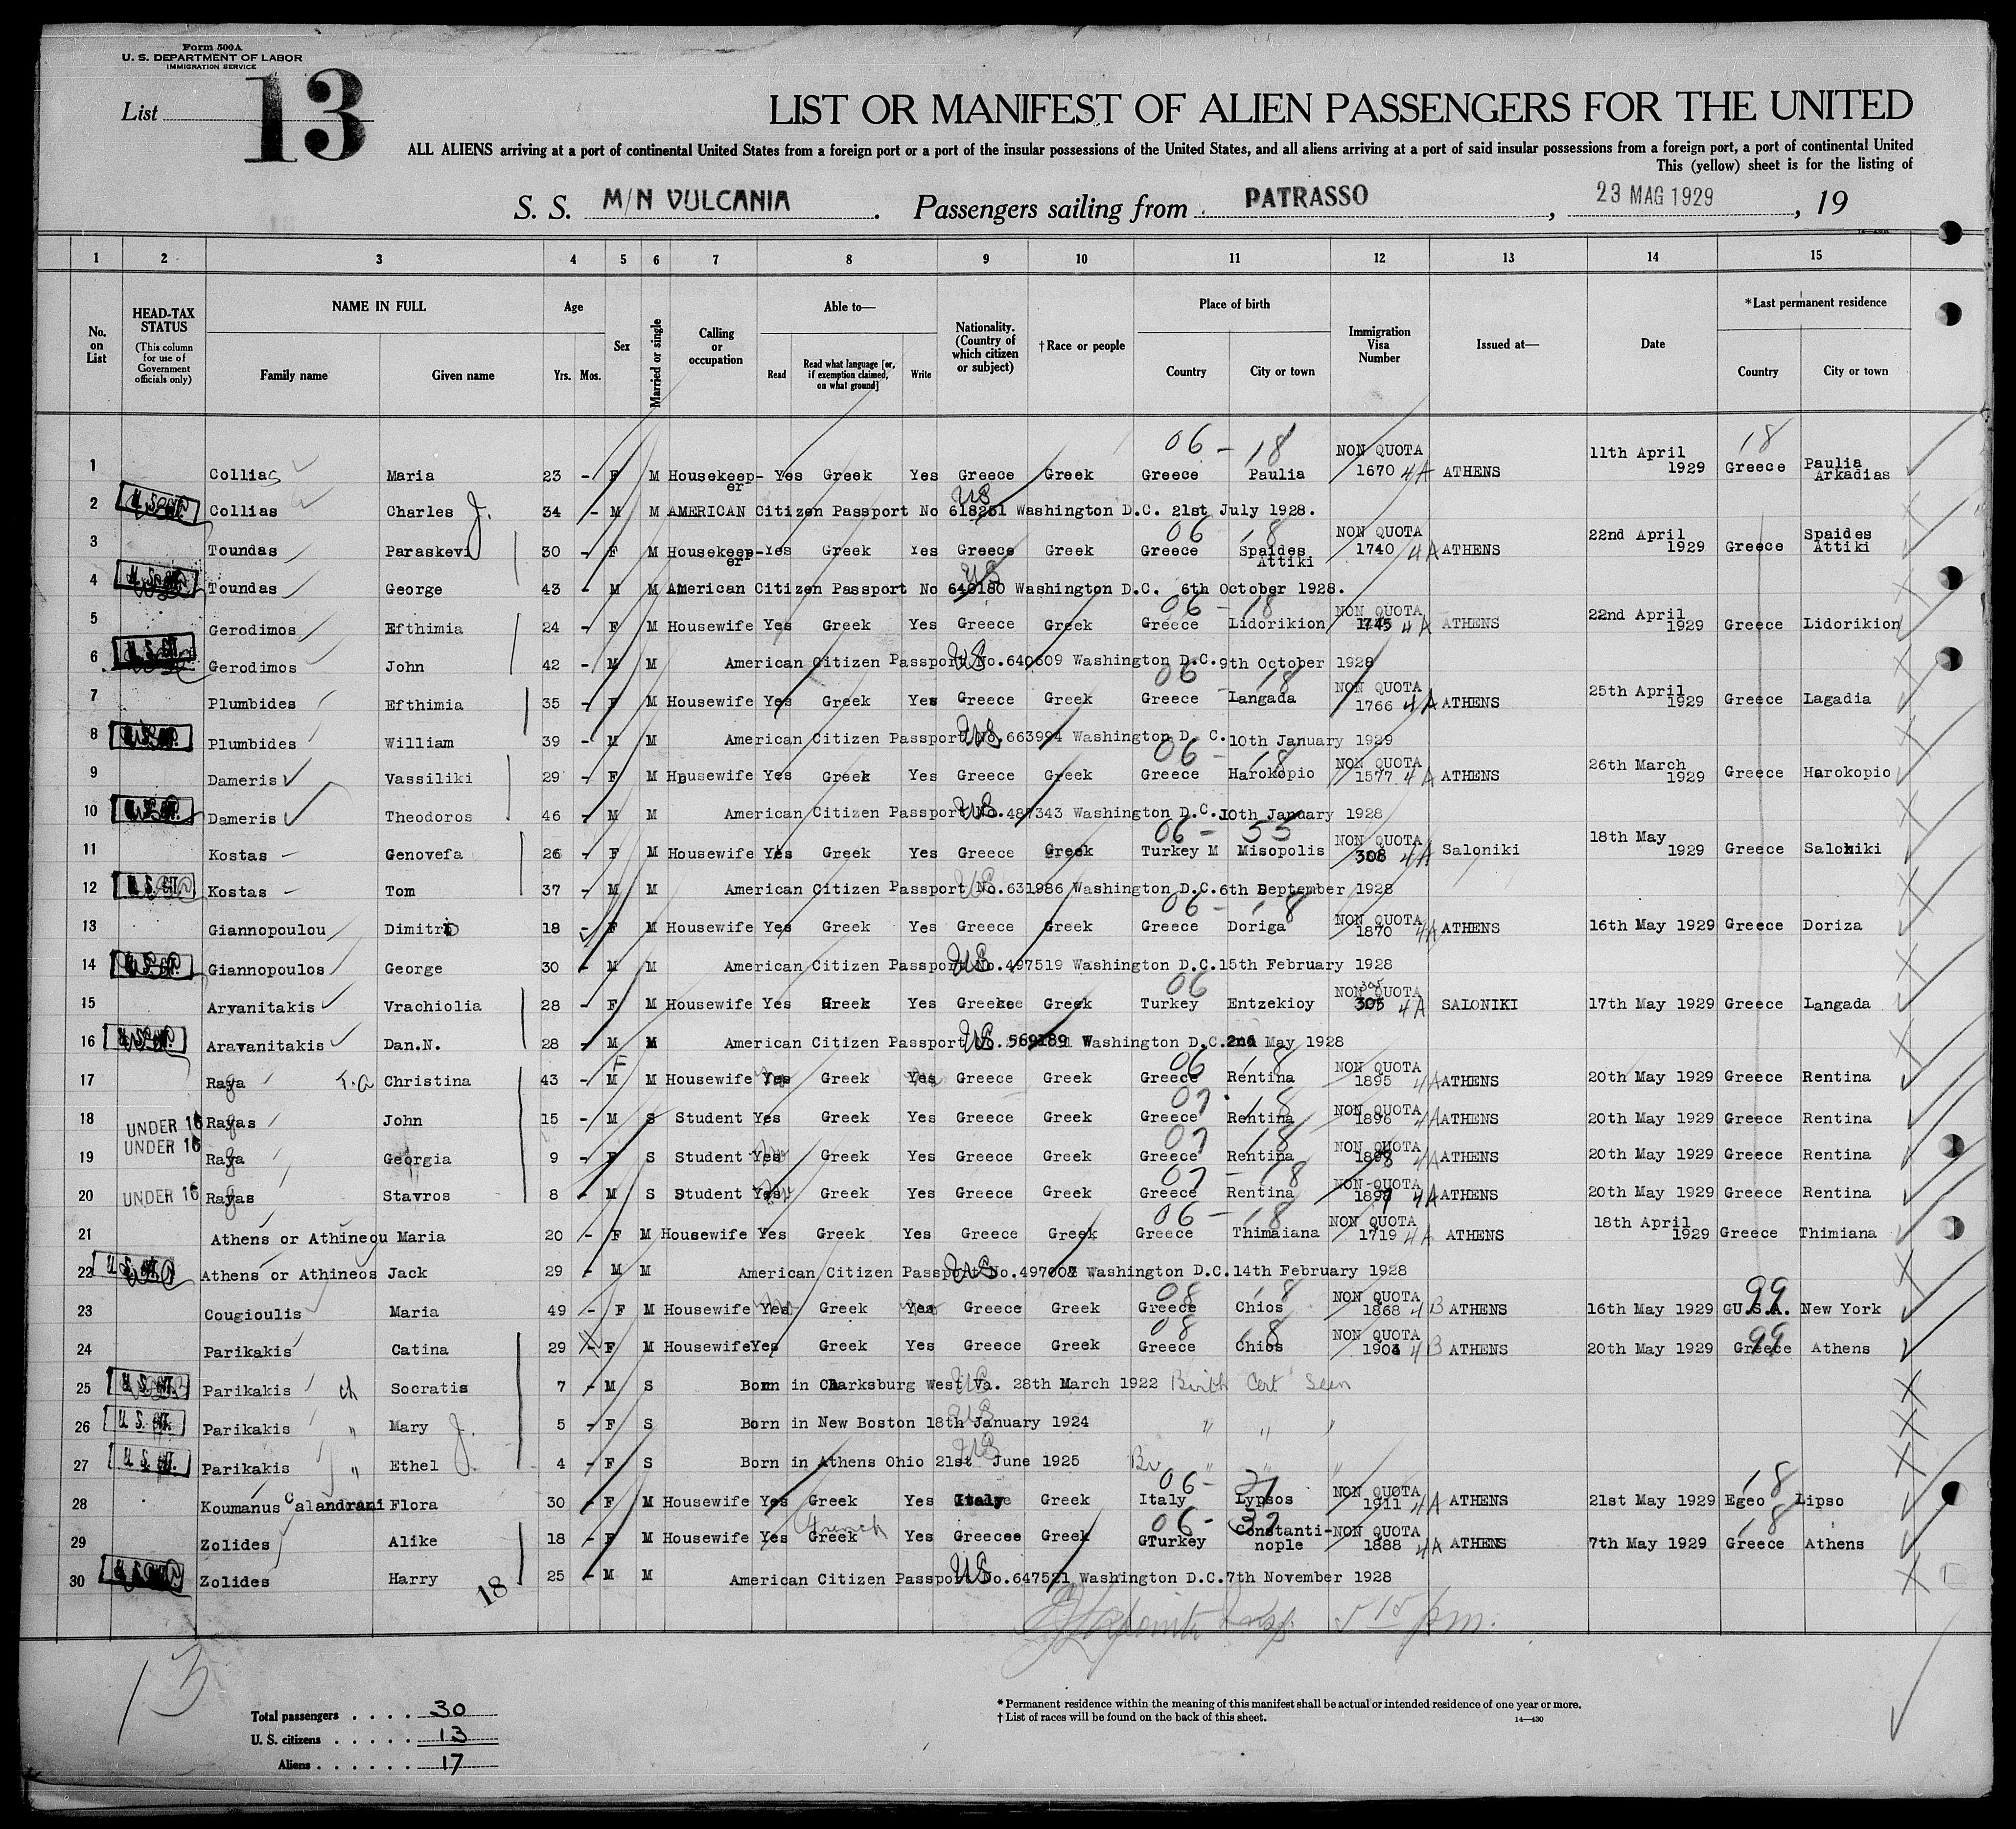 Form 500A
U. S. DEPARTMENT OF LABOR
IMMIGRATION SERVICE
List 13
LIST OR MANIFEST OF ALIEN PASSENGERS FOR THE UNITED
ALL ALIENS arriving at a port of continental United States from a foreign port or a port of the insular possessions of the United States, and all aliens arriving at a port of said insular possessions from a foreign port, a port of continental United
This (yellow) sheet is for the listing of
S. S. M/N VULCANIA . Passengers sailing from PATRASSO , 23 MAG 1929 , 19
1 2 3 4 5 6 7 8 9 10 11 12 13 14 15
No. on List
HEAD-TAX STATUS (This column for use of Government officials only)
NAME IN FULL Family name Given name
Age Yrs. Mos.
Sex
Married or single
Calling or occupation
Able to— Read Read what language [or, if exemption claimed, on what ground] Write
Nationality. (Country of which citizen or subject)
†Race or people
Place of birth Country City or town
Immigration Visa Number
Issued at—
Date
*Last permanent residence Country City or town
1 Collias Maria 23 - F M Housekeep-er Yes Greek Yes Greece Greek Greece Paulia 06 - 18 NON QUOTA 1670 4A ATHENS 11th April 1929 18 Greece Paulia Arkadias
2 Collias Charles J. 34 - M M AMERICAN Citizen Passport No 618251 Washington D.C. 21st July 1928. US
3 Toundas Paraskevi 30 - F M Housekeep-er Yes Greek Yes Greece Greek Greece Spaides Attiki 06 18 NON QUOTA 1740 4A ATHENS 22nd April 1929 Greece Spaides Attiki
4 Toundas George 43 - M M American Citizen Passport No 640180 Washington D.C. 6th October 1928. US
5 Gerodimos Efthimia 24 - F M Housewife Yes Greek Yes Greece Greek Greece Lidorikion 06 - 18 NON QUOTA 1745 4A ATHENS 22nd April 1929 Greece Lidorikion
6 U. S. CIT. Gerodimos John 42 - M M American Citizen Passport No.640609 Washington D.C. 9th October 1928 US
7 Plumbides Efthimia 35 - F M Housewife Yes Greek Yes Greece Greek Greece Langada 06 - 18 NON QUOTA 1766 4A ATHENS 25th April 1929 Greece Lagadia
8 Plumbides William 39 - M M American Citizen Passport No.663994 Washington D. C. 10th January 1929 US
9 Dameris Vassiliki 29 - F M Housewife Yes Greek Yes Greece Greek Greece Harokopio 06 - 18 NON QUOTA 1577 4A ATHENS 26th March 1929 Greece Harokopio
10 U. S. CIT. Dameris Theodoros 46 - M M American Citizen Passport No.487343 Washington D.C. 10th January 1928 US
11 Kostas Genovefa 26 - F M Housewife Yes Greek Yes Greece Greek Turkey M Misopolis 06 - 55 NON QUOTA 308 4A Saloniki 18th May 1929 Greece Saloniki
12 U. S. CIT. Kostas Tom 37 - M M American Citizen Passport No.631986 Washington D.C. 6th September 1928 US
13 Giannopoulou Dimitro 18 - F M Housewife Yes Greek Yes Greece Greek Greece Doriga 06 - 18 NON QUOTA 1870 4A ATHENS 16th May 1929 Greece Doriza
14 U. S. CIT. Giannopoulos George 30 - M M American Citizen Passport No.497519 Washington D.C. 15th February 1928 US
15 Arvanitakis Vrachiolia 28 - F M Housewife Yes Greek Yes Greece Greek Turkey Entzekioy 06 NON QUOTA 305 4A SALONIKI 17th May 1929 Greece Langada
16 Aravanitakis Dan.N. 28 - M M American Citizen Passport 569189 Washington D.C. 2nd May 1928 US
17 Raya Christina 43 - M F M Housewife Yes Greek Yes Greece Greek Greece Rentina 06 18 NON QUOTA 1895 4A ATHENS 20th May 1929 Greece Rentina
18 UNDER 16 Rayas John 15 - M S Student Yes Greek Yes Greece Greek Greece Rentina 07 18 NON QUOTA 1896 4A ATHENS 20th May 1929 Greece Rentina
19 UNDER 16 Raya Georgia 9 - F S Student Yes Greek Yes Greece Greek Greece Rentina 07 18 NON QUOTA 1898 4A ATHENS 20th May 1929 Greece Rentina
20 UNDER 16 Rayas Stavros 8 - M S Student Yes Greek Yes Greece Greek Greece Rentina 07 - 18 NON QUOTA 1897 4A ATHENS 20th May 1929 Greece Rentina
21 Athens or Athineou Maria 20 - F M Housewife Yes Greek Yes Greece Greek Greece Thimaiana 06 - 18 NON QUOTA 1719 4A ATHENS 18th April 1929 Greece Thimiana
22 U. S. CIT. Athens or Athineos Jack 29 - M M American Citizen Passport No.497002 Washington D.C. 14th February 1928 US
23 Cougioulis Maria 49 - F M Housewife Yes Greek Yes Greece Greek Greece Chios 08 18 NON QUOTA 1868 4B ATHENS 16th May 1929 99 U.S.A. New York
24 Parikakis Catina 29 - F M Housewife Yes Greek Yes Greece Greek Greece Chios 08 18 NON QUOTA 1904 4B ATHENS 20th May 1929 99 Greece Athens
25 U. S. CIT. Parikakis ch Socratis 7 - M S Born in Clarksburg West Va. 28th March 1922 Birth Cert Seen US
26 U. S. CIT. Parikakis " Mary J. 5 - F S Born in New Boston 18th January 1924 " " " US
27 U. S. CIT. Parikakis " Ethel J. 4 - F S Born in Athens Ohio 21st June 1925 " " " US
28 Koumanus Calandrani Flora 30 - F M Housewife Yes Greek Yes Italy Greek Italy Lypsos 06 - 37 NON QUOTA 1911 4A ATHENS 21st May 1929 18 Egeo Lipso
29 Zolides Alike 18 - F M Housewife Yes Greek French Yes Greece Greek Turkey Constanti-nople 06 - 37 NON QUOTA 1888 4A ATHENS 7th May 1929 18 Greece Athens
30 Zolides Harry 25 - M M American Citizen Passport No.647521 Washington D.C. 7th November 1928 US
18
Insp. 5 15 pm.
13
Total passengers . . . . 30
U. S. citizens . . . . . 13
Aliens . . . . . . 17
* Permanent residence within the meaning of this manifest shall be actual or intended residence of one year or more.
† List of races will be found on the back of this sheet.
14—430